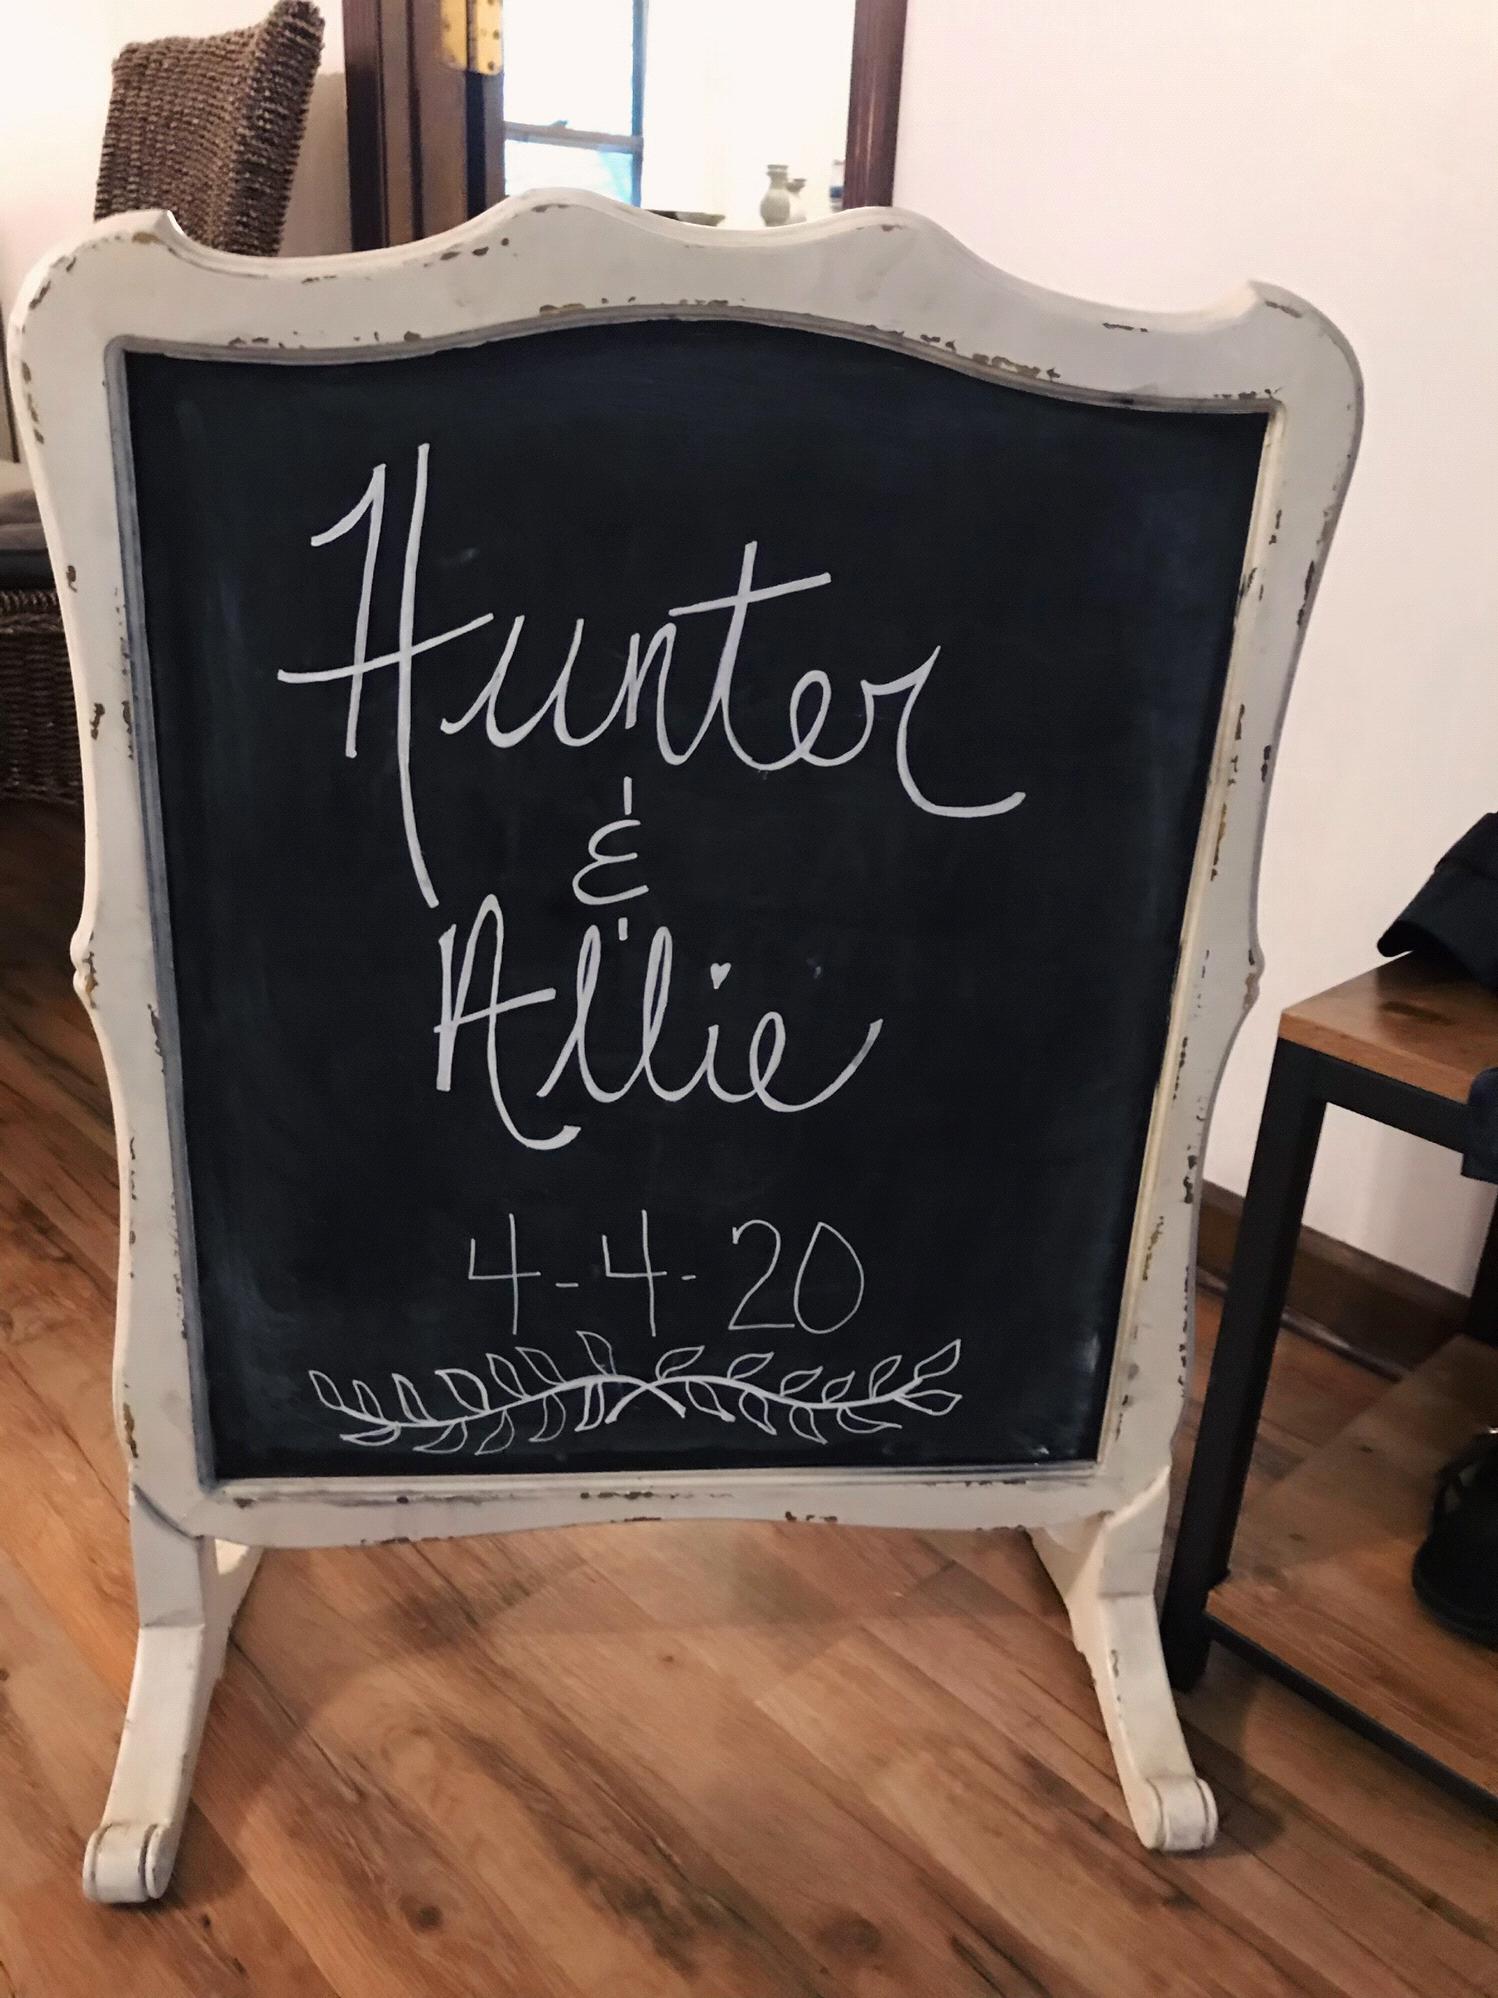 Hunter
&
Allie
4-4-20